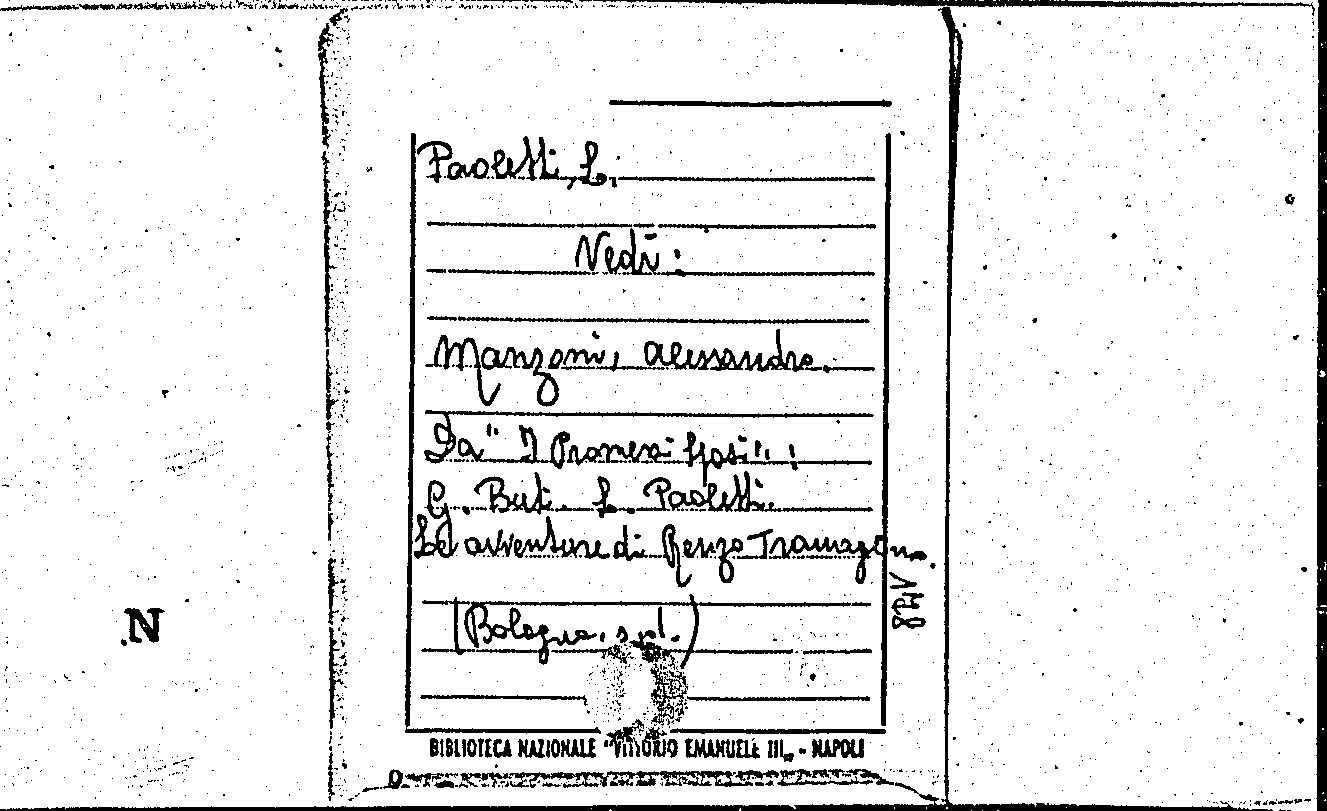 Paoletti, L.
Vedi:
Manzoni, Alessandro.
Da "I Promessi Sposi":
G. Buti. L. Paoletti.
Le avventure di Renzo Tramaglino.
(Bologna, s.d.)
N
BIBLIOTECA NAZIONALE "VITTORIO EMANUELE III„ - NAPOLI